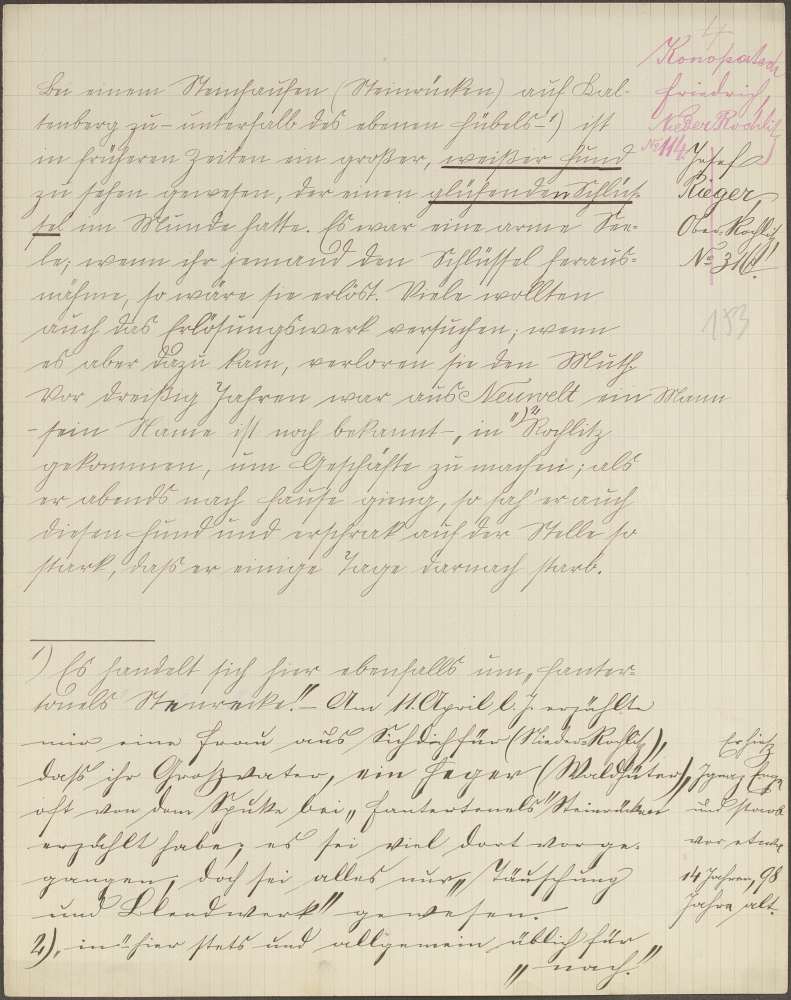 4
Konopatsch
Friedrich,
Nieder Rochlitz
No 114.
Bei einem Steinhaufen (Steinrücken) auf Kal-
tenberg zu – unterhalb des ebenen Hübels –¹) ist
in früheren Zeiten ein großer, weißer Hund
zu sehen gewesen, der einen glühenden Schlüs-
sel im Munde hatte. Es war eine arme See-
le; wenn ihr jemand den Schlüssel heraus-
nähme, so wäre sie erlöst. Viele wollten
auch das Erlösungswerk versuchen; wenn
es aber dazu kam, verloren sie den Muth.
Vor dreißig Jahren war aus Neuwelt ein Mann
– sein Name ist noch bekannt –, „in“²) Rochlitz
gekommen, um Geschäfte zu machen; als
er abends nach Hause gieng, so sah er auch
diesen Hund und erschrak auf der Stelle so
stark, dass er einige Tage darnach starb.
Josef
Rieger,
Ober-Rochlitz
No 316!
183
1) Es handelt sich hier ebenfalls um „Hanter-
tonels Steinrecke!“ – Am 11. April l. J. erzählte
mir eine Frau aus Sichdichfür (Nieder-Rochlitz),
dass ihr Großvater, ein Heger (Waldhüter),
oft von dem Spuke bei „Hantertonels“ Steinrücken
erzählt habe; es sei viel dort vorge-
gangen, doch sei alles nur „Täuschung
und Blendwerk“ gewesen.
2) „in“ hier stets und allgemein üblich für
„nach.“
Er hieß
Ignaz
und starb
vor etwa
14 Jahren, 98
Jahre alt.